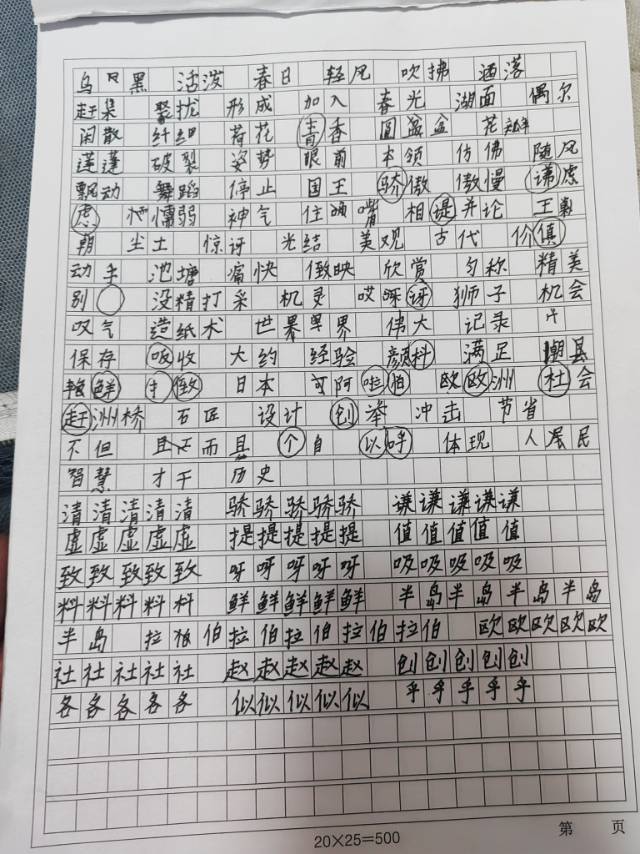 乌 黑 活泼 春日 轻风 吹拂 洒落
赶集 聚拢 形成 加入 春光 湖面 偶尔
闲散 纤细 荷花 青香 圆盆盆 花
莲蓬 破裂 姿势 眼前 本领 仿佛 随风
飘动 舞蹈 停止 国王 骄傲 傲慢 谦虑
虑 懦弱 神气 住 嘴 相提并论 王
朝 尘土 惊讶 光结 美观 古代 价值
动手 池塘 痛快 倒映 欣赏 匀称 精美
别 没精打采 机灵 哎呀讶 狮子 机会
叹气 造纸术 世界 界 伟大 记录
保存 吸收 大约 经验 颜料 满足
艳鲜 倒 日本 阿啦怕 欧欧洲 社会
赶州桥 石匠 设计 创举 冲击 节省
不但 而且 个自 以呼 体现 人 民
智慧 才干 历史
清清清清清 骄骄骄骄骄 谦谦谦谦谦
虚虚虚虚虚 提提提提提 值值值值值
致致致致致 呀呀呀呀呀 吸吸吸吸吸
料料料料料 鲜鲜鲜鲜鲜 半岛半岛半岛半岛
半岛 拉伯拉伯拉伯拉伯拉伯 欧欧欧欧欧
社社社社社 赵赵赵赵赵 创创创创创
各各各各各 似似似似似 乎乎乎乎乎
第 页
20×25=500